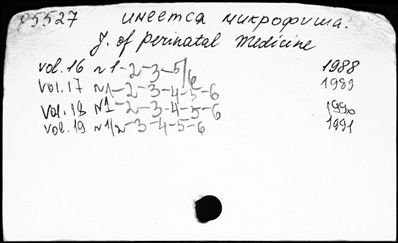 P5527 имеется микрофиша.
J. of perinatal Medicine
vol. 16 N1-2-3-5/6 1988
vol. 17 N1-2-3-4-5-6 1989
vol. 18 N1-2-3-4-5-6 1990
vol. 19 N1/2-3-4-5-6 1991